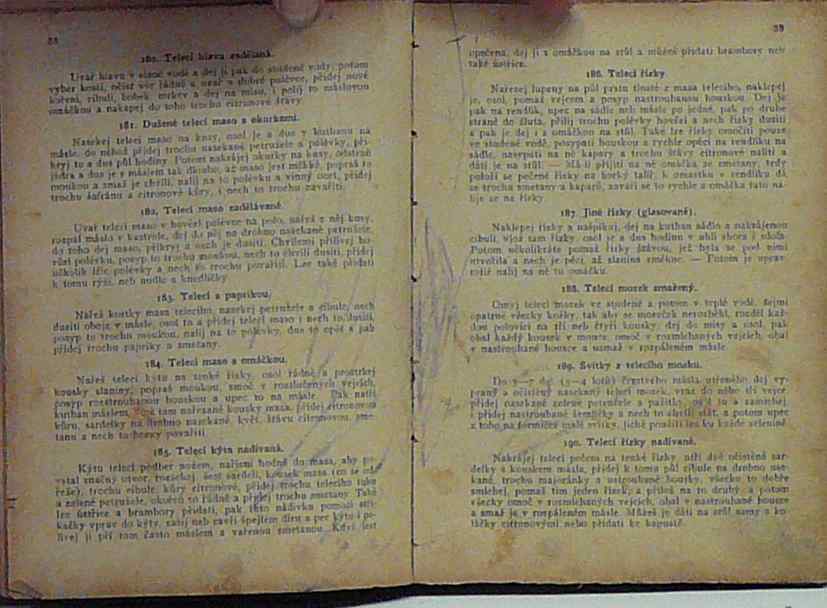 38
180. Telecí hlava zadělaná.
Uvař hlavu v slané vodě a dej ji pak do studené vody, potom
vyber kosti, očisť vše řádně a uvař v dobré polévce, přidej nové
koření, cibuli, bobek, mrkev a dej na mísu, i polij to máslovou
omáčkou a nakapej do toho trochu citronové šťávy.
181. Dušené telecí maso s okurkami.
Nasekej telecí maso na kusy, osol je a dus v kuthanu na
másle, do něhož přidej trochu nasekané petružele a polévky, při-
kryj to a dus půl hodiny. Potom nakrájej okurky na kusy, odstraň
jádra a dus je v máslem tak dlouho, až maso jest měkké, popraš to
moukou a smaž je chvíli, nalij na to polévku a vinný ocet, přidej
trochu šafránu a citronové kůry, i nech to trochu zavařiti.
182. Telecí maso zadělávané.
Uvař telecí maso v hovězí polévce na polo, nařež z něj kusy,
rozpal máslo v kastrole, dej do něj na drobno nasekané petružele,
do toho dej maso, přikryj a nech je dusiti. Chvílemi přilívej ho-
vězí polévku, posyp to trochu moukou, nech to chvíli dusiti, přidej
několik lžic polévky a nech to trochu povařiti. Lze také přidati
k tomu rýži, neb nudle a knedlíčky.
183. Telecí s paprikou.
Nařež kostky masa telecího, nasekej petružele a cibule, nech
dusiti oboje v másle, osol to a přidej telecí maso i nech to dusiti,
posyp to trochu moukou, nalij na to polévky, dus to opět a pak
přidej trochu papriky a smetany.
184. Telecí maso s omáčkou.
Nařež telecí kýtu na tenké řízky, osol řádně a prostrkej
kousky slaniny, popraš moukou, smoč v rozšlehaných vejcích,
posyp rozstrouhanou houskou a upec to na másle. Pak natři
kuthan máslem, vlož tam nařezané kousky masa, přidej citronovou
kůru, sardelky na drobno nasekané, květ, šťávu citronovou, sme-
tanu a nech to hezky povařiti.
185. Telecí kýta nadívaná.
Kýtu telecí podber nožem, nařízni hodně do masa, aby po-
vstal značný otvor, rozsekej šest sardelí, kousek masa (en se od-
řeže), trochu cibule, kůry citronové, přidej trochu telecího tuku
a zelené petružele, okořeň to řádně a přidej trochu smetany. Také
lze ústřice a brambory přidati, pak tuto nádivku pomocí stří-
kačky vprav do kýty, zašij neb zavři špejlem díru a peč kýtu i po-
lívej ji při tom často máslem a vařenou smetanou. Když jest
39
opečena, dej ji s omáčkou na stůl a můžeš přidati brambory neb
také ústřice.
186. Telecí řízky.
Nařežeš lupany na půl prstu tlusté z masa telecího, naklepej
je, osol, pomaž vejcem a posyp nastrouhanou houskou. Dej je
pak na rendlík, upec na sádle neb másle po jedné, pak po druhé
straně do žluta, přilij trochu polévky hovězí a nech řízky dusiti
a pak je dej i s omáčkou na stůl. Také lze řízky omočiti pouze
ve studené vodě, posypati houskou a rychle opéci na rendlíku na
sádle, nasypati na ně kapary a trochu šťávy citronové naliti a
dáti je na stůl. — Má-li přijíti na ně omáčka ze smetany, tedy
položí se pečené řízky na horký talíř, k omastku v rendlíku dá
se trochu smetany a kaparů, zavaří se to rychle a omáčka tato na-
lije se na řízky.
187. Jiné řízky (glasované).
Naklepej řízky a našpikuj, dej na kuthan sádlo a nakrájenou
cibuli, vlož tam řízky, osol je a dus hodinu v uhlí shora i zdola.
Potom několikráte pomaž řízky šťávou, jež byla se pod nimi
utvořila a nech je péci, až slanina změkne. — Potom je uprav
tolik nalij na ně tu omáčku.
188. Telecí mozek smažený.
Omyj telecí mozek ve studené a potom v teplé vodě. Sejmi
opatrně všecky kožky, tak aby se mozeček nerozběhl, rozděl kaž-
dou polovici na tři neb čtyři kousky, dej do mísy a osol, pak
obal každý kousek v mouce, omoč v rozmíchaných vejcích, obal
v nastrouhané housce a usmaž v rozpáleném másle.
189. Svitky z telecího mozku.
Do 5—7 dg. (3—4 lotů) čerstvého másla utřeného dej vy-
praný a očištěný nasekaný telecí mozek, vraz do něho tři vejce,
přidej nasekané zelené petružele a pažitky, osol to a zamíchej
i přidej nastrouhané žemličky a nech to chvíli stát, a potom upec
z toho na formičce malé svitky, jichž použíti lze ku každé zelenině.
190. Telecí řízky nadívané.
Nakrájej telecí pečeni na tenké řízky, utři dvě očistěné sar-
delky s kouskem másla, přidej k tomu půl cibule na drobno nase-
kané, trochu majoránky a ustrouhané housky, všecko to dobře
smíchej, pomaž tím jeden řízek, a přilož na to druhý, a potom
všecky omoč v rozmíchaných vejcích, obal v nastrouhané housce
a smaž je v rozpáleném másle. Můžeš je dáti na stůl samy s ko-
láčky citronovými nebo přidati ke kapustě.